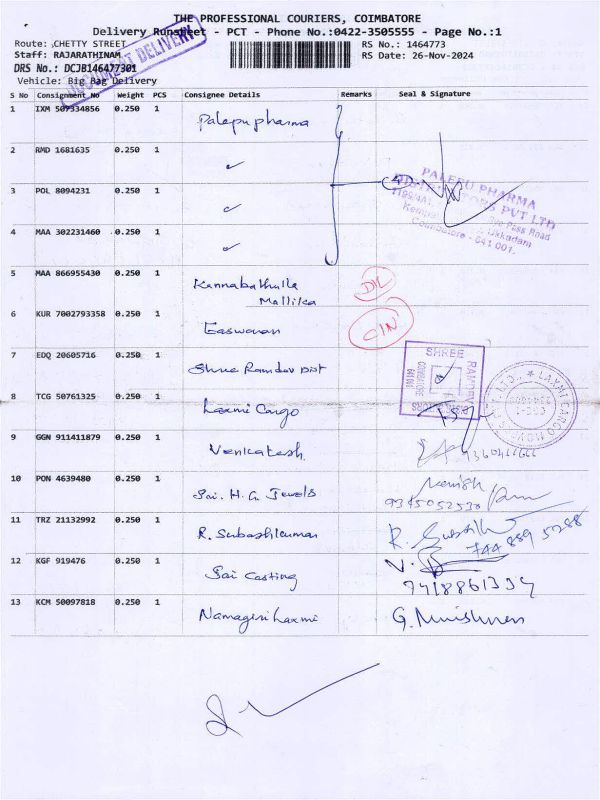 THE PROFESSIONAL COURIERS, COIMBATORE
Delivery Runsheet - PCT - Phone No.:0422-3505555 - Page No.:1
Route: CHETTY STREET
RS No.: 1464773
Staff: RAJARATHINAM
RS Date: 26-Nov-2024
DRS No.: DCJB146477301
DOCUMENT DELIVERY
Vehicle: Big Bag Delivery
S No Consignment No Weight PCS Consignee Details Remarks Seal & Signature
1 IXM 507334856 0.250 1 Palepu pharma
2 RMD 1681635 0.250 1 ✓
3 POL 8094231 0.250 1 ✓
4 MAA 302231460 0.250 1 ✓
4
PALEPU PHARMA
DISTRIBUTORS PVT LTD
Pass Road
Ukkadam
Coimbatore - 641 001.
5 MAA 866955430 0.250 1 Kannabathulla
Mallika
DL
6 KUR 7002793358 0.250 1 Easwaran C/N
7 EDQ 20605716 0.250 1 Shree Ramdev Dist
SHREE
RAMDEV
COIMBATORE
8 TCG 50761325 0.250 1 Laxmi Cargo
LAXMI CARGO
9 GGN 911411879 0.250 1 Venkatesh
10 PON 4639480 0.250 1 Sai. H. G Jewels Manish
9345052530
11 TRZ 21132992 0.250 1 R. Subashkumar
744 889 5288
12 KGF 919476 0.250 1 Sai Casting
7418861334
13 KCM 50097818 0.250 1 Namagiri Laxmi